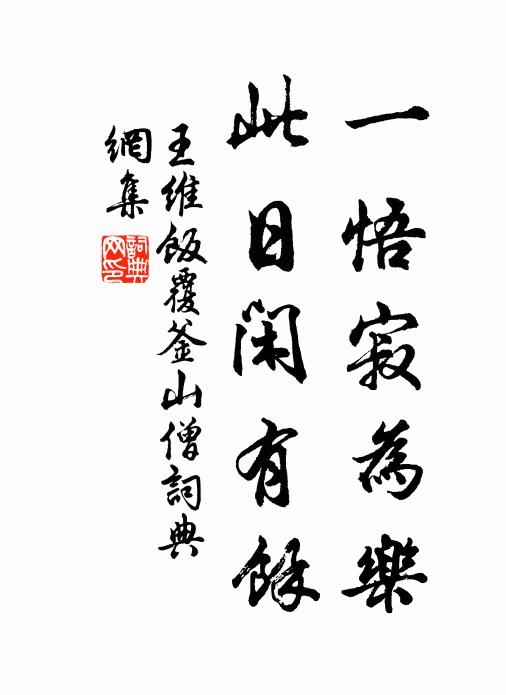 一悟寂為樂
此日閑有餘
王維飯覆釜山僧詞典
網集
詞典
網印